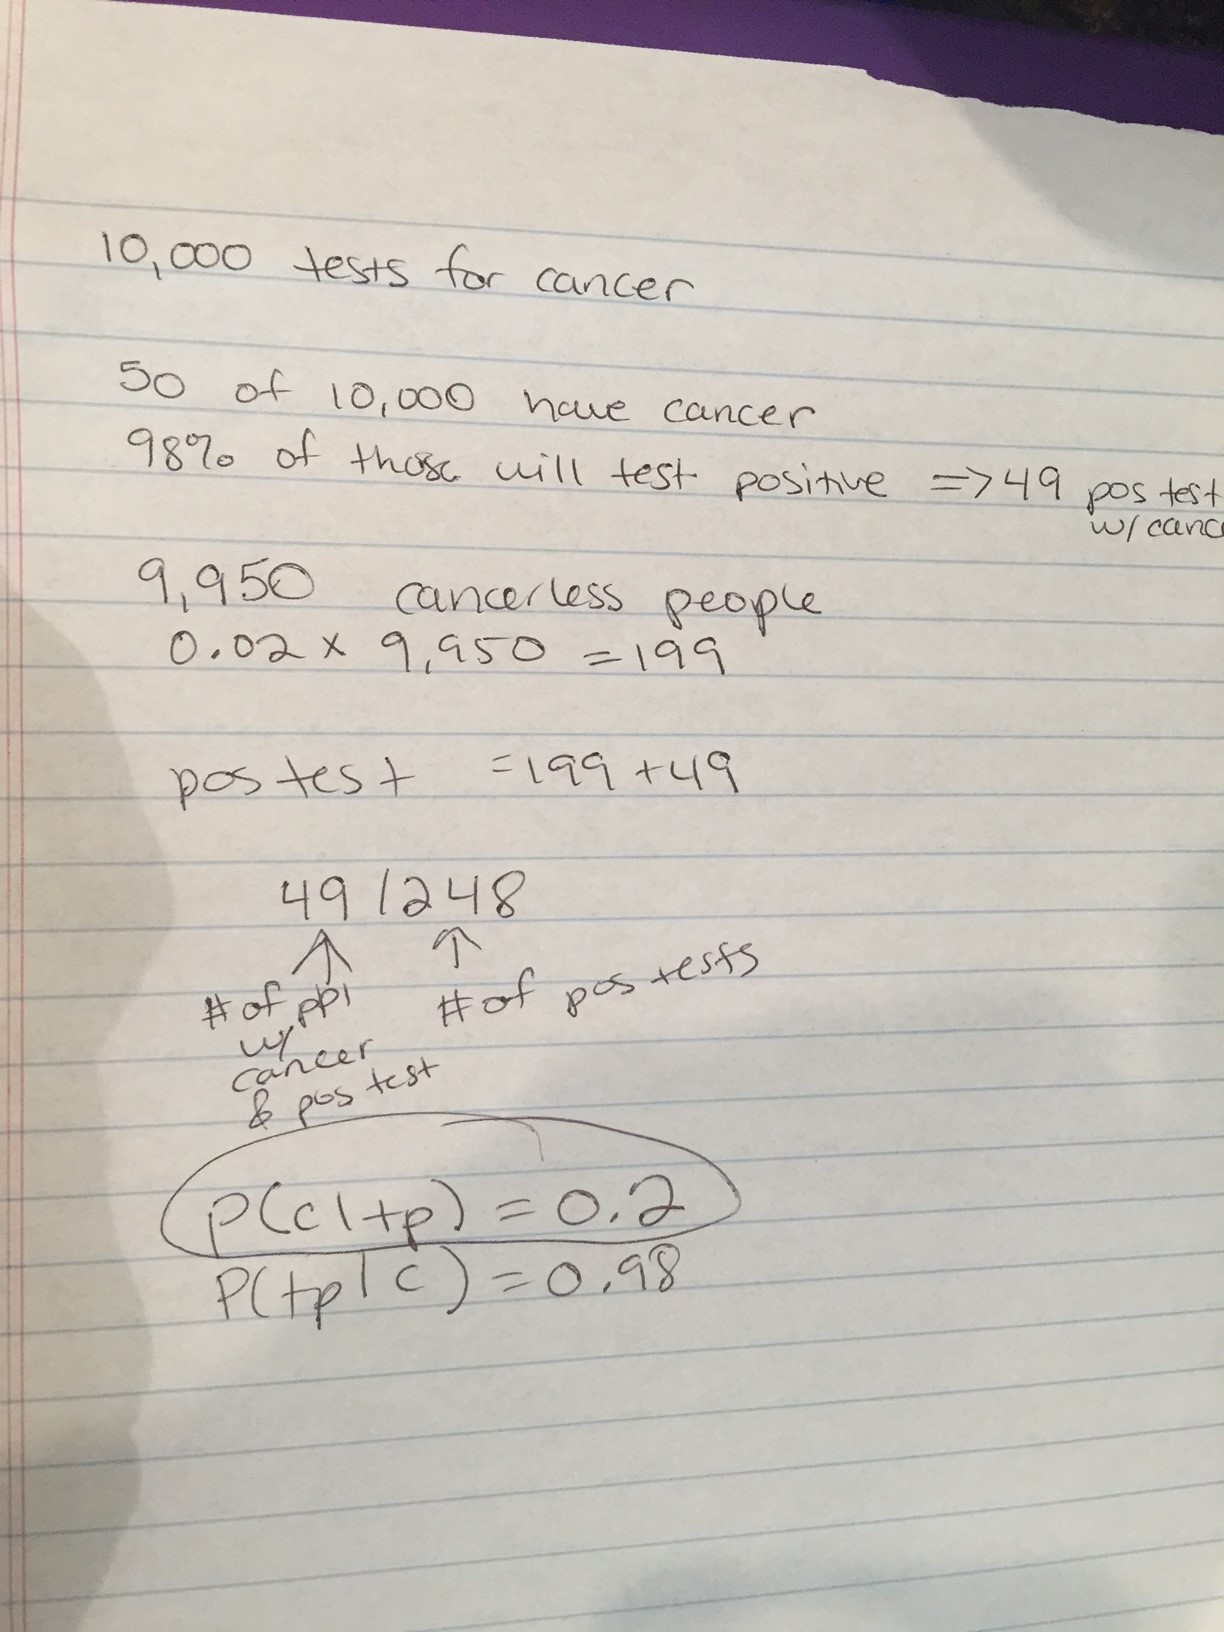 10,000 tests for cancer
50 of 10,000 have cancer
98% of those will test positive => 49 pos test
w/ canc
9,950 cancerless people
0.02 x 9,950 = 199
pos test = 199 + 49
49 / 248
# of ppl
w/
cancer
& pos test
# of pos tests
P(c|+p) = 0.2
P(+p|c) = 0.98